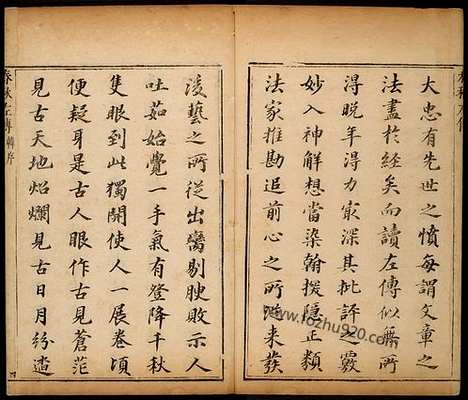 大忠有先世之憤每謂文章之
法盡於經矣而讀左傳似無所
得晚年得力最深其批評之竅
妙入神解想當染翰掞隱正類
法家推勘追前心之所從來發
淩藝之所從出臠剔腴敗示人
吐茹始覺一手氣有登降千秋
隻眼到此獨開使人一展卷頃
便疑耳是古人眼作古見蒼茫
見古天地焰爛見古日月紛遝
春秋左傳
序
www.fozhu920.com